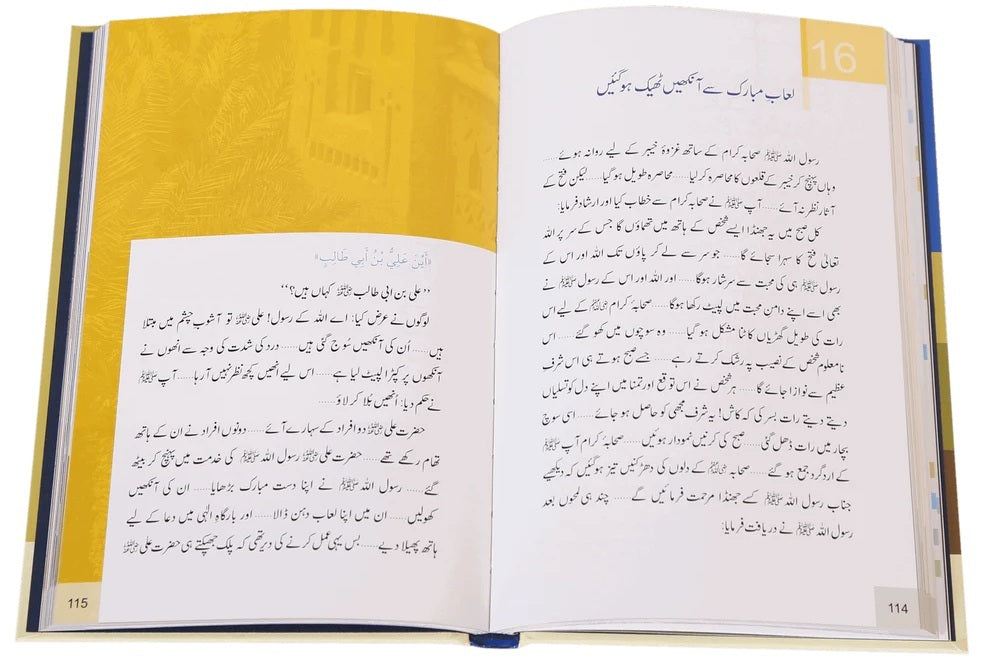 16
لعاب مبارک سے آنکھیں ٹھیک ہوگئیں
رسول اللہ ﷺ صحابہ کرام کے ساتھ غزوۂ خیبر کے لیے روانہ ہوئے......
وہاں پہنچ کر خیبر کے قلعوں کا محاصرہ کرلیا......محاصرہ طویل ہوگیا......لیکن فتح کے
آثار نظر نہ آئے......آپ ﷺ نے صحابہ کرام سے خطاب کیا اور ارشاد فرمایا:
کل صبح میں یہ جھنڈا ایسے شخص کے ہاتھ میں تھماؤں گا جس کے سر پر اللہ
تعالیٰ فتح کا سہرا سجائے گا......جو سر سے لے کر پاؤں تک اللہ اور اس کے
رسول ﷺ ہی کی محبت سے سرشار ہوگا......اور اللہ اور اس کے رسول ﷺ نے
بھی اسے اپنے دامن محبت میں لپیٹ رکھا ہوگا......صحابۂ کرام ﷢ کے لیے اس
رات کی طویل گھڑیاں کاٹنا مشکل ہو گیا......وہ سوچوں میں کھو گئے......اس
نامعلوم شخص کے نصیب پہ رشک کرتے رہے......جسے صبح ہوتے ہی اس شرف
عظیم سے نوازا جائے گا......ہر شخص نے اس توقع اور تمنا میں اپنے دل کو تسلیاں
دیتے دیتے رات بسر کی کہ کاش! یہ شرف مجھی کو حاصل ہو جائے......اسی سوچ
بچار میں رات ڈھل گئی......صبح کی کرنیں نمودار ہوئیں......صحابۂ کرام آپ ﷺ
کے اردگرد جمع ہو گئے......صحابہ ﷢ کے دلوں کی دھڑکنیں تیز ہوگئیں کہ دیکھیے
جناب رسول اللہ ﷺ کسے جھنڈا مرحمت فرمائیں گے......چند ہی لمحوں بعد
رسول اللہ ﷺ نے دریافت فرمایا:
114
«أَيْنَ عَلِيُّ بْنُ أَبِي طَالِبٍ»
”علی بن ابی طالب ﷜ کہاں ہیں؟“
لوگوں نے عرض کیا: اے اللہ کے رسول! علی ﷜ تو آشوب چشم میں مبتلا
ہیں......اُن کی آنکھیں سُوج گئی ہیں......درد کی شدت کی وجہ سے انھوں نے
آنکھوں پر کپڑا لپیٹ لیا ہے......اس لیے انھیں کچھ نظر نہیں آرہا......آپ ﷺ
نے حکم دیا: اُنھیں بُلا کر لاؤ......
حضرت علی ﷜ دو افراد کے سہارے آئے......دونوں افراد نے ان کے ہاتھ
تھام رکھے تھے......حضرت علی ﷜ رسول اللہ ﷺ کی خدمت میں پہنچ کر بیٹھ
گئے......رسول اللہ ﷺ نے اپنا دست مبارک بڑھایا......ان کی آنکھیں
کھولیں......ان میں اپنا لعاب دہن ڈالا......اور بارگاہِ الٰہی میں دعا کے لیے
ہاتھ پھیلا دیے......بس یہی عمل کرنے کی دیر تھی کہ پلک جھپکتے ہی حضرت علی ﷜
115